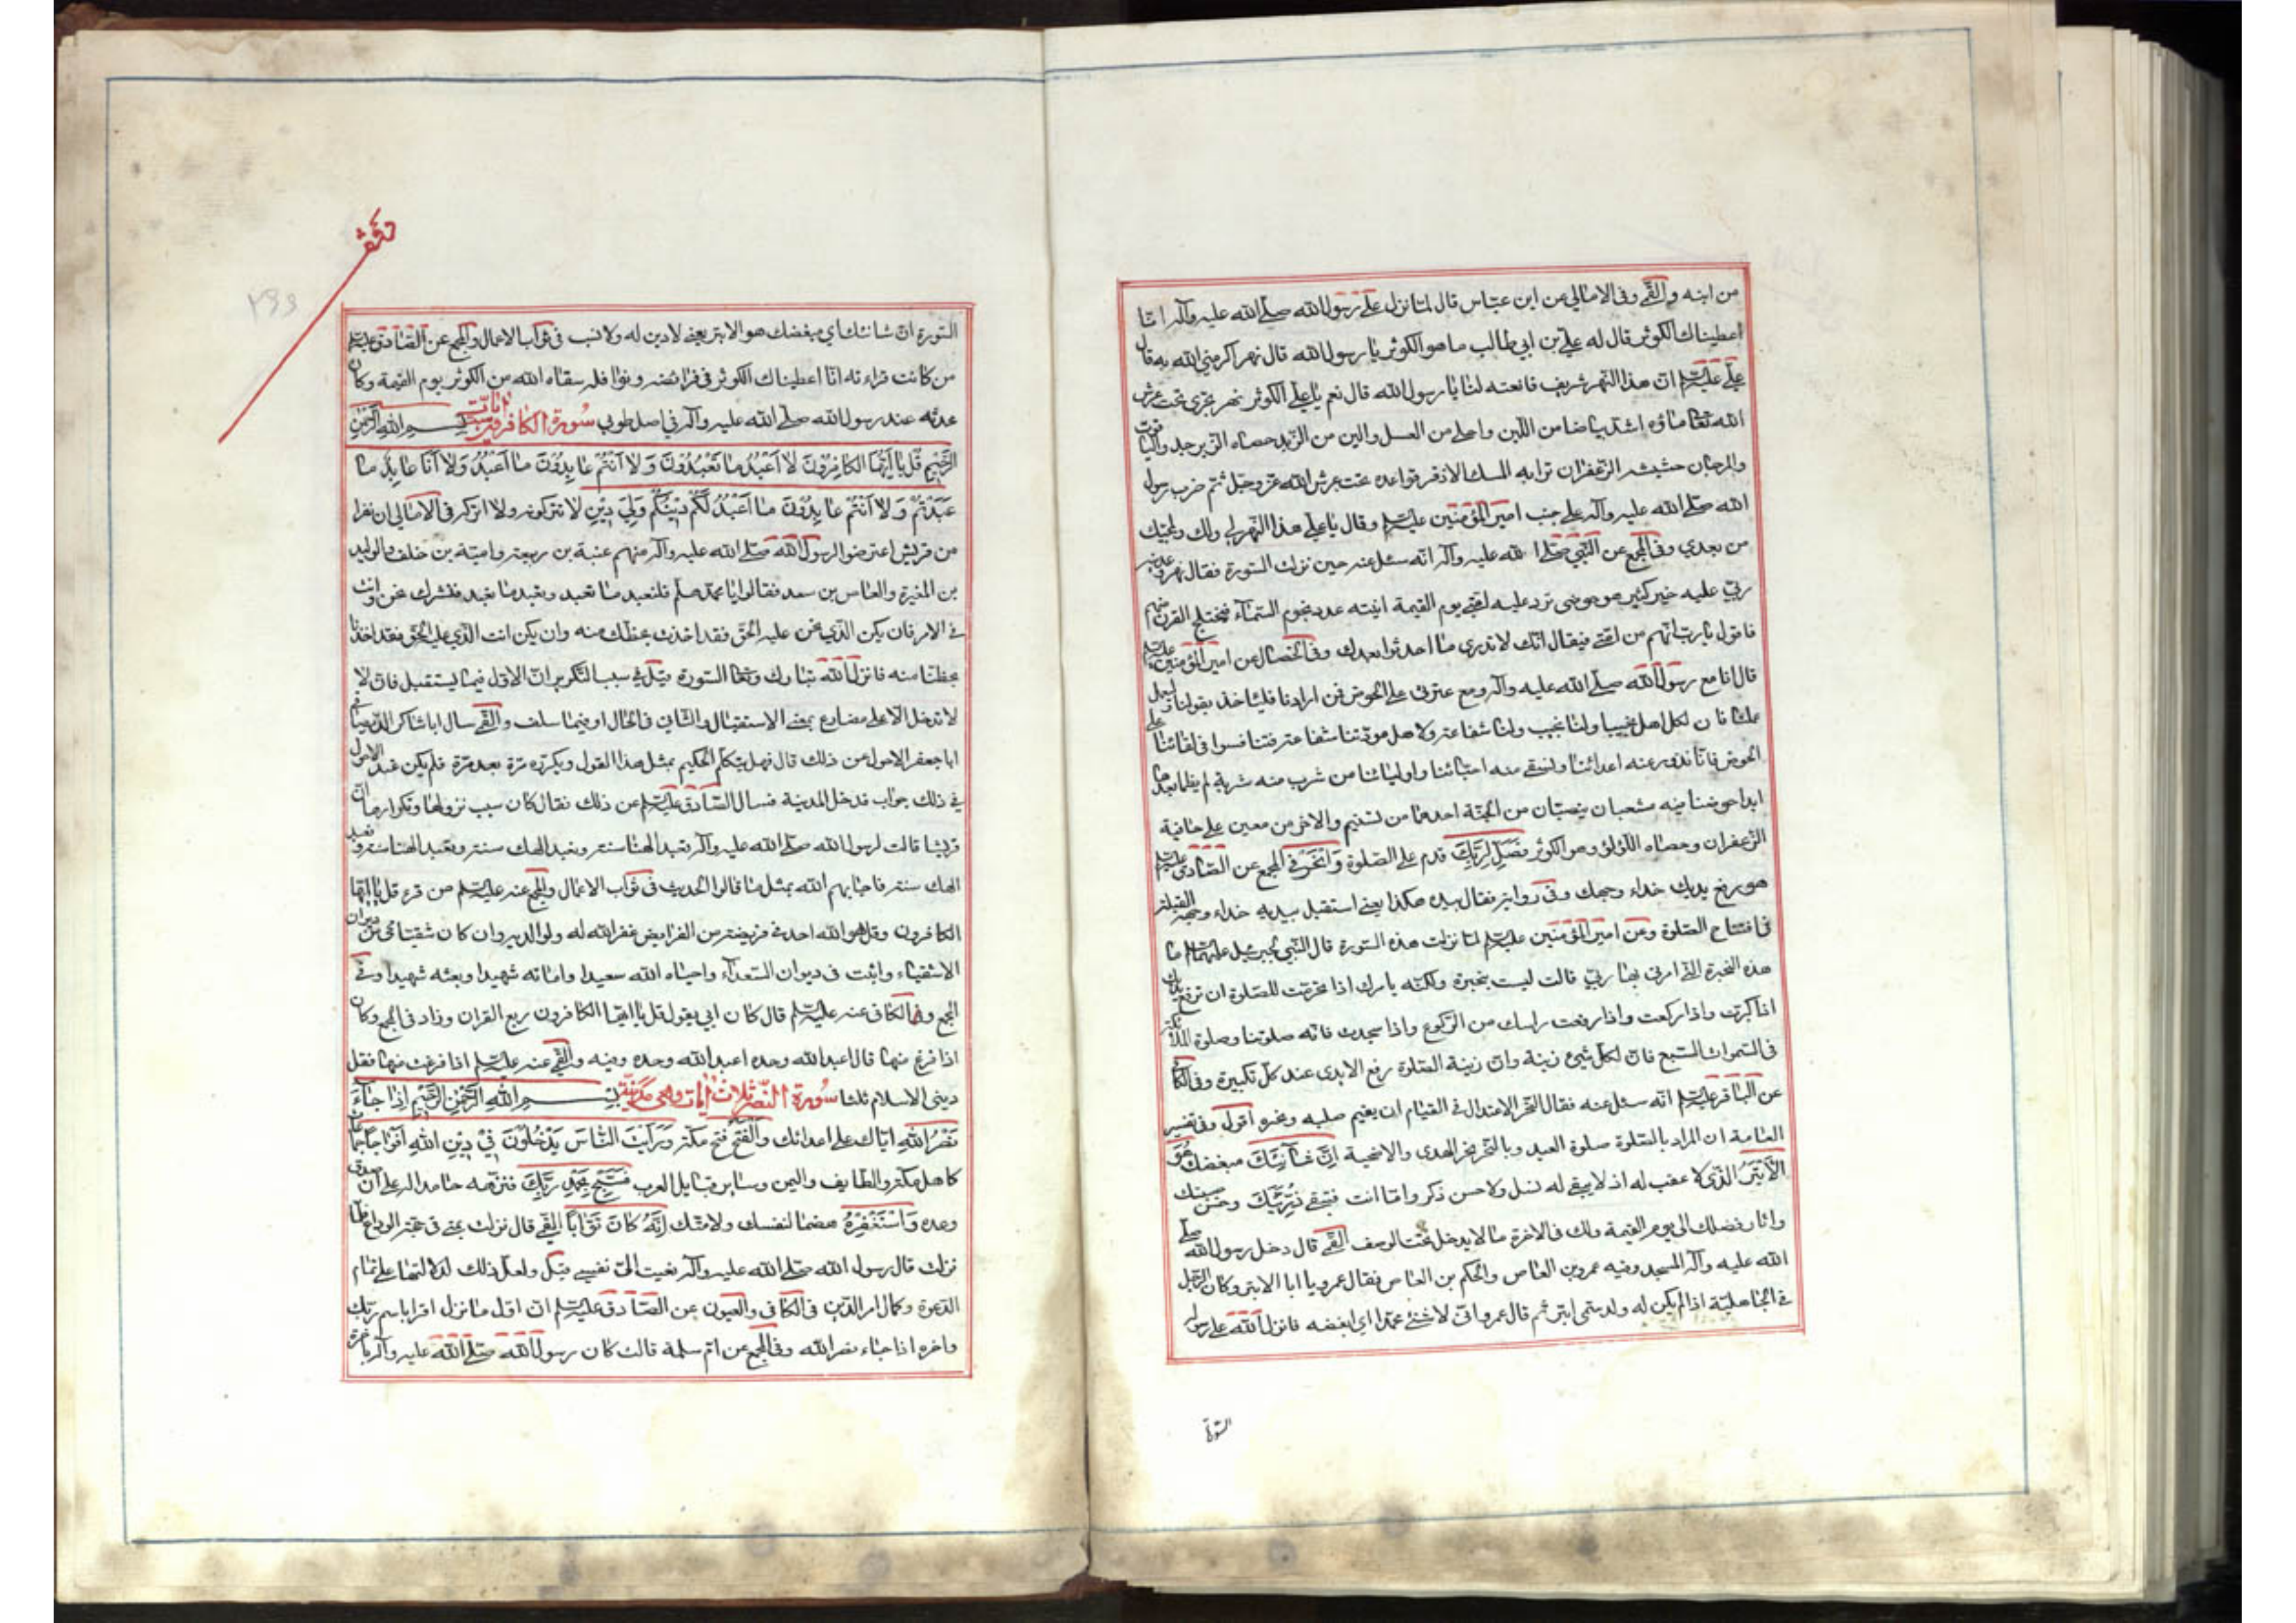 من ابنه والقمي وفي الامالي عن ابن عباس قال لما نزل على رسول الله صلى الله عليه وآله انا
اعطيناك الكوثر قال له علي بن ابي طالب ما هو الكوثر يا رسول الله قال نهر اكرمني الله به قال
علي عليه السلم ان هذا النهر شريف فانعته لنا يا رسول الله قال نعم يا علي الكوثر نهر يجري تحت عرش
الله تعا ماؤه اشد بياضا من اللبن واحلى من العسل والين من الزبد حصاه الزبرجد والياقوت
والمرجان حشيشه الزعفران ترابه المسك الاذفر قواعده تحت عرش الله عز وجل ثم ضرب رسول
الله صلى الله عليه وآله على جنب امير المؤمنين عليه السلم وقال يا علي هذا النهر لي ولك ولمحبيك
من بعدي وفي المجمع عن النبي صلى الله عليه وآله انه سئل عنه حين نزلت السورة فقال نهر وعدنيه
ربي عليه خير كثير هو حوضي ترد عليه امتي يوم القيمة انيته عدد نجوم السماء فيختلج القرن منهم
فاقول يا رب انهم من امتي فيقال انك لا تدري ما احدثوا بعدك وفي الخصال عن امير المؤمنين عليه السلم
قال انا مع رسول الله صلى الله عليه وآله ومع عترتي على الحوض فمن ارادنا فلياخذ بقولنا وليعمل
عملنا فان لكل اهل نجيبا ولنا نجيب ولنا شفاعة ولاهل مودتنا شفاعة فتنافسوا في لقائنا على
الحوض فانا نذود عنه اعدائنا ونسقي منه احبائنا واوليائنا من شرب منه شربة لم يظما بعدها
ابدا حوضنا فيه مشعبان ينصبان من الجنة احدهما من تسنيم والاخر من معين على حافتيه
الزعفران وحصاه اللؤلؤ وهو الكوثر فَصَلِّ لِرَبِّكَ قدم على الصلوة وَانْحَرْ في المجمع عن الصادق عليه السلم
هو رفع يديك حذاء وجهك وفي رواية فقال بيده هكذا يعني استقبل بيديه حذاء وجهه القبلة
في افتتاح الصلوة وعن امير المؤمنين عليه السلم لما نزلت هذه السورة قال النبي لجبرئيل عليهما السلم ما
هذه النحيرة التي امرني بها ربي قالت ليست بنحيرة ولكنه يامرك اذا تحرمت للصلوة ان ترفع يديك
اذا كبرت واذا ركعت واذا رفعت راسك من الركوع واذا سجدت فانه صلوتنا وصلوة الملائكة
في السموات السبع فان لكل شيء زينة وان زينة الصلوة رفع الايدي عند كل تكبيرة وفي الكافي
عن الباقر عليه السلم انه سئل عنه فقال النحر الاعتدال في القيام ان يقيم صلبه ونحره اقول وفي تفسير
العامة ان المراد بالصلوة صلوة العيد وبالنحر نحر الهدي والاضحية اِنَّ شَانِئَكَ مبغضك هُوَ
الْاَبْتَرُ الذي لا عقب له اذ لا يبقى له نسل ولا حسن ذكر واما انت فتبقى ذريتك وحسن صيتك
واثار فضلك الى يوم القيمة ولك في الاخرة ما لا يدخل تحت الوصف القمي قال دخل رسول الله صلى
الله عليه وآله المسجد وفيه عمرو بن العاص والحكم بن العاص فقال عمرو يا ابا الابتر وكان الرجل
في الجاهلية اذا لم يكن له ولد سمي ابتر ثم قال عمرو اني لاشنئ محمدا اي ابغضه فانزل الله على رسوله
السورة
السورة ان شانئك اي مبغضك هو الابتر يعني لا دين له ولا نسب في ثواب الاعمال والمجمع عن الصادق عليه السلم
من كانت قراءته انا اعطيناك الكوثر في فرائضه ونوافله سقاه الله من الكوثر يوم القيمة وكان
محدثه عند رسول الله صلى الله عليه وآله في اصل طوبى سُورة الكافرون ست ايات بسم الله الرحمن
الرحيم قُلْ يَا اَيُّهَا الْكَافِرُونَ لَا اَعْبُدُ مَا تَعْبُدُونَ وَلَا اَنْتُمْ عَابِدُونَ مَا اَعْبُدُ وَلَا اَنَا عَابِدٌ مَا
عَبَدْتُمْ وَلَا اَنْتُمْ عَابِدُونَ مَا اَعْبُدُ لَكُمْ دِينُكُمْ وَلِيَ دِينِ لا تتركونه ولا اتركه في الامالي ان نفرا
من قريش اعترضوا لرسول الله صلى الله عليه وآله منهم عتبة بن ربيعة وامية بن خلف والوليد
بن المغيرة والعاص بن سعد فقالوا يا محمد هلم فلنعبد ما تعبد وتعبد ما نعبد فنشرك نحن وانت
في الامر فان يكن الذي نحن عليه الحق فقد اخذت بحظك منه وان يكن انت الذي على الحق فقد اخذنا
بحظنا منه فانزل الله تبارك وتعا السورة قيل في سبب التكرير ان الاول فيما يستقبل فان لا
لا تدخل الا على مضارع بمعنى الاستقبال والثاني في الحال او فيما سلف والقمي سال ابا شاكر الديصاني
ابا جعفر الاحول عن ذلك قال فهل يتكلم الحكيم بمثل هذا القول ويكرره مرة بعد مرة فلم يكن عند الاحول
في ذلك جواب فدخل المدينة فسال الصادق عليه السلم عن ذلك فقال كان سبب نزولها وتكرارها ان
قريشا قالت لرسول الله صلى الله عليه وآله تعبد الهنا سنة ونعبد الهك سنة وتعبد الهنا سنة ونعبد
الهك سنة فاجابهم الله بمثل ما قالوا الحديث في ثواب الاعمال والمجمع عنه عليه السلم من قرء قل يا ايها
الكافرون وقل هو الله احد في فريضة من الفرايض غفر الله له ولوالديه وان كان شقيا محي من ديوان
الاشقياء واثبت في ديوان السعداء واحياه الله سعيدا واماته شهيدا وبعثه شهيدا وفي
المجمع وفي الكافي عنه عليه السلم قال كان ابي يقول قل يا ايها الكافرون ربع القران وزاد في المجمع وكان
اذا فرغ منها قال اعبد الله وحده اعبد الله وحده وفيه والقمي عنه عليه السلم اذا فرغت منها فقل
ديني الاسلام ثلثا سُورة النصر ثلاث ايات وهي مدنية بسم الله الرحمن الرحيم اِذَا جَاءَ
نَصْرُ اللهِ اياك على اعدائك وَالْفَتْحُ فتح مكة وَرَاَيْتَ النَّاسَ يَدْخُلُونَ فِي دِينِ اللهِ اَفْوَاجًا جماعات
كاهل مكة والطايف واليمن وساير قبايل العرب فَسَبِّحْ بِحَمْدِ رَبِّكَ فنزهه حامدا له على ان صدق
وعده وَاسْتَغْفِرْهُ هضما لنفسك ولامتك اِنَّهُ كَانَ تَوَّابًا القمي قال نزلت بمنى في حجة الوداع فلما
نزلت قال رسول الله صلى الله عليه وآله نعيت الي نفسي قيل ولعل ذلك لدلالتها على تمام
الدعوة وكمال امر الدين في الكافي والعيون عن الصادق عليه السلم ان اول ما نزل اقرا باسم ربك
واخره اذا جاء نصر الله وفي المجمع عن ام سلمة قالت كان رسول الله صلى الله عليه وآله باخره